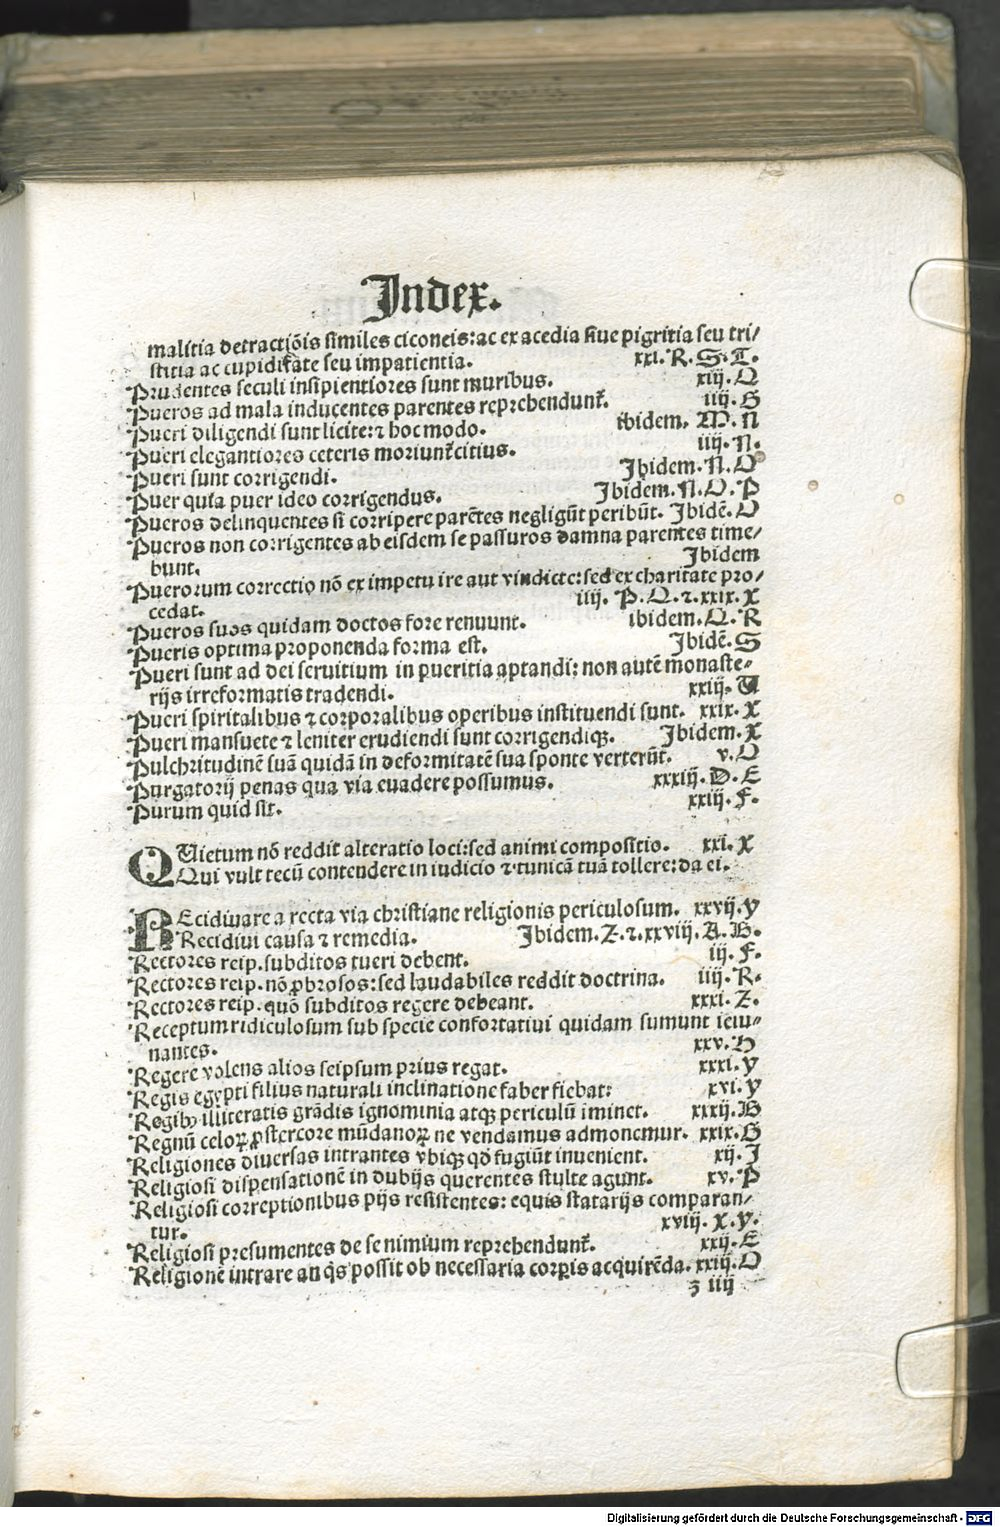 Index.
malitia detractiõis similes ciconeis: ac ex acedia siue pigritia seu tri⸗
stitia ac cupiditate seu impatientia. xxi. R. S. T.
Prudentes seculi insipientiores sunt muribus. xiij. Q
Pueros ad mala inducentes parentes reprehendunt᷑. iiij. G
Pueri diligendi sunt licite: ⁊ hoc modo. ibidem. M. N
Pueri elegantiores ceteris moriunt᷑ citius. iiij. N.
Pueri sunt corrigendi. Ibidem. N. O
Puer quia puer ideo corrigendus. Ibidem. N. O. P
Pueros delinquentes si corripere parẽtes negligũt peribũt. Ibidẽ. O
Pueros non corrigentes ab eisdem se passuros damna parentes time⸗
bunt. Ibidem
Puerorum correctio nõ ex impetu ire aut vindicte: sed ex charitate pro⸗
cedat. iiij. P. Q. ⁊. xxix. X
Pueros suos quidam doctos fore renuunt. ibidem. Q. R
Pueris optima proponenda forma est. Ibidẽ. S
Pueri sunt ad dei seruitium in pueritia aptandi: non autẽ monaste⸗
rijs irreformatis tradendi. xxiij. V
Pueri spiritalibus ⁊ corporalibus operibus instituendi sunt. xxix. X
Pueri mansuete ⁊ leniter erudiendi sunt corrigendiqꝫ. Ibidem. X
Pulchritudinẽ suã quidã in deformitatẽ sua sponte verterũt. v. O
Purgatorij penas qua via euadere possumus. xxxiij. D. E
Purum quid sit. xxiij. F.
QVietum nõ reddit alteratio loci: sed animi compositio. xxi. X
Qui vult tecũ contendere in iudicio ⁊ tunicã tuã tollere: da ei.
REcidiuare a recta via christiane religionis periculosum. xxvij. y
Recidiui causa ⁊ remedia. Ibidem. Z. ⁊. xxviij. A. B.
Rectores reip. subditos tueri debent. iij. F.
Rectores reip. nõ ꝓbrosos: sed laudabiles reddit doctrina. iiij. R.
Rectores reip. quõ subditos regere debeant. xxxi. Z.
Receptum ridiculosum sub specie confortatiui quidam sumunt ieiu⸗
nantes. xxv. H
Regere volens alios seipsum prius regat. xxxi. y
Regis egypti filius naturali inclinatione faber fiebat: xvi. y
Regibꝰ illiteratis grãdis ignominia atqꝫ periculũ iminet. xxxij. B
Regnũ celoꝝ ꝓ stercore mũdanoꝝ ne vendamus admonemur. xxix. G
Religiones diuersas intrantes vbiqꝫ qd̃ fugiũt inuenient. xij. I
Religiosi dispensationẽ in dubijs querentes stulte agunt. xv. P
Religiosi correptionibus pijs resistentes: equis statarijs comparan⸗
tur. xviij. X. y.
Religiosi presumentes de se nimium reprehendunt᷑. xxij. E
Religionẽ intrare an q̃s possit ob necessaria corꝑis acquirẽda. xxiij. O
ʒ iiij
Digitalisierung gefördert durch die Deutsche Forschungsgemeinschaft - DFG